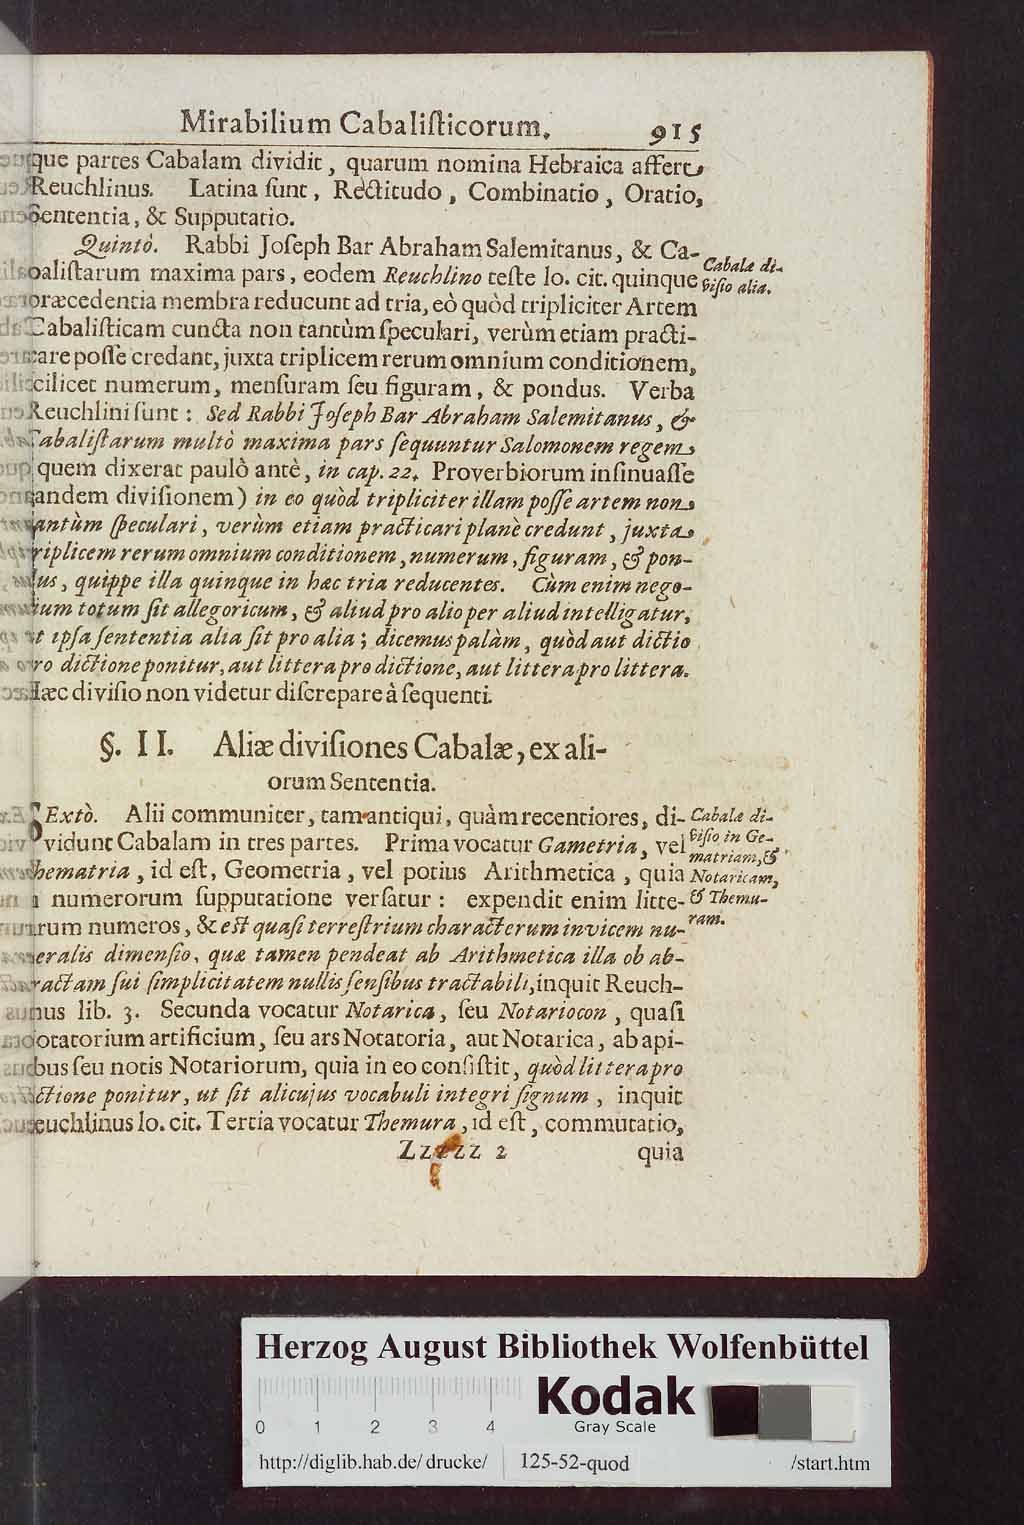 Mirabilium Cabaliſticorum. 915
que partes Cabalam dividit, quarum nomina Hebraica affert
Reuchlinus. Latina ſunt, Rectitudo, Combinatio, Oratio,
Sententia, & Supputatio.
Quintò. Rabbi Joſeph Bar Abraham Salemitanus, & Ca-
baliſtarum maxima pars, eodem Reuchlino teſte lo. cit. quinque
Cabalæ di-
viſio alia.
præcedentia membra reducunt ad tria, eò quòd tripliciter Artem
Cabaliſticam cuncta non tantùm ſpeculari, verùm etiam practi-
care poſſe credant, juxta triplicem rerum omnium conditionem,
ſcilicet numerum, menſuram ſeu figuram, & pondus. Verba
Reuchlini ſunt: Sed Rabbi Joſeph Bar Abraham Salemitanus, &
Cabaliſtarum multò maxima pars ſequuntur Salomonem regem
quem dixerat paulò antè, in cap. 22. Proverbiorum inſinuaſſe
eandem diviſionem) in eo quòd tripliciter illam poſſe artem non
tantùm ſpeculari, verùm etiam practicari planè credunt, juxta
triplicem rerum omnium conditionem, numerum, figuram, & pon-
dus, quippe illa quinque in hæc tria reducentes. Cùm enim nego-
tium totum ſit allegoricum, & aliud pro alio per aliud intelligatur,
ut ipſa ſententia alia ſit pro alia; dicemus palàm, quòd aut dictio
pro dictione ponitur, aut littera pro dictione, aut littera pro littera.
Hæc diviſio non videtur diſcrepare à ſequenti.
§. II. Aliæ diviſiones Cabalæ, ex ali-
orum Sententia.
SExtò. Alii communiter, tam antiqui, quàm recentiores, di-
vidunt Cabalam in tres partes. Prima vocatur Gametria, vel
Cabalæ di-
viſio in Ge-
matriam, &
Notaricam,
& Themu-
ram.
Ghematria, id eſt, Geometria, vel potius Arithmetica, quia
in numerorum ſupputatione verſatur: expendit enim litte-
rarum numeros, & eſt quaſi terreſtrium characterum invicem nu-
meralis dimenſio, quæ tamen pendeat ab Arithmetica illa ob ab-
ſtractam ſui ſimplicitatem nullis ſenſibus tractabili, inquit Reuch-
linus lib. 3. Secunda vocatur Notarica, ſeu Notariocon, quaſi
notatorium artificium, ſeu ars Notatoria, aut Notarica, ab api-
cibus ſeu notis Notariorum, quia in eo conſiſtit, quòd littera pro
dictione ponitur, ut ſit alicujus vocabuli integri ſignum, inquit
Reuchlinus lo. cit. Tertia vocatur Themura, id eſt, commutatio,
Zzzzz 2 quia
Herzog August Bibliothek Wolfenbüttel
Kodak
Gray Scale
0 1 2 3 4
http://diglib.hab.de/drucke/ 125-52-quod /start.htm